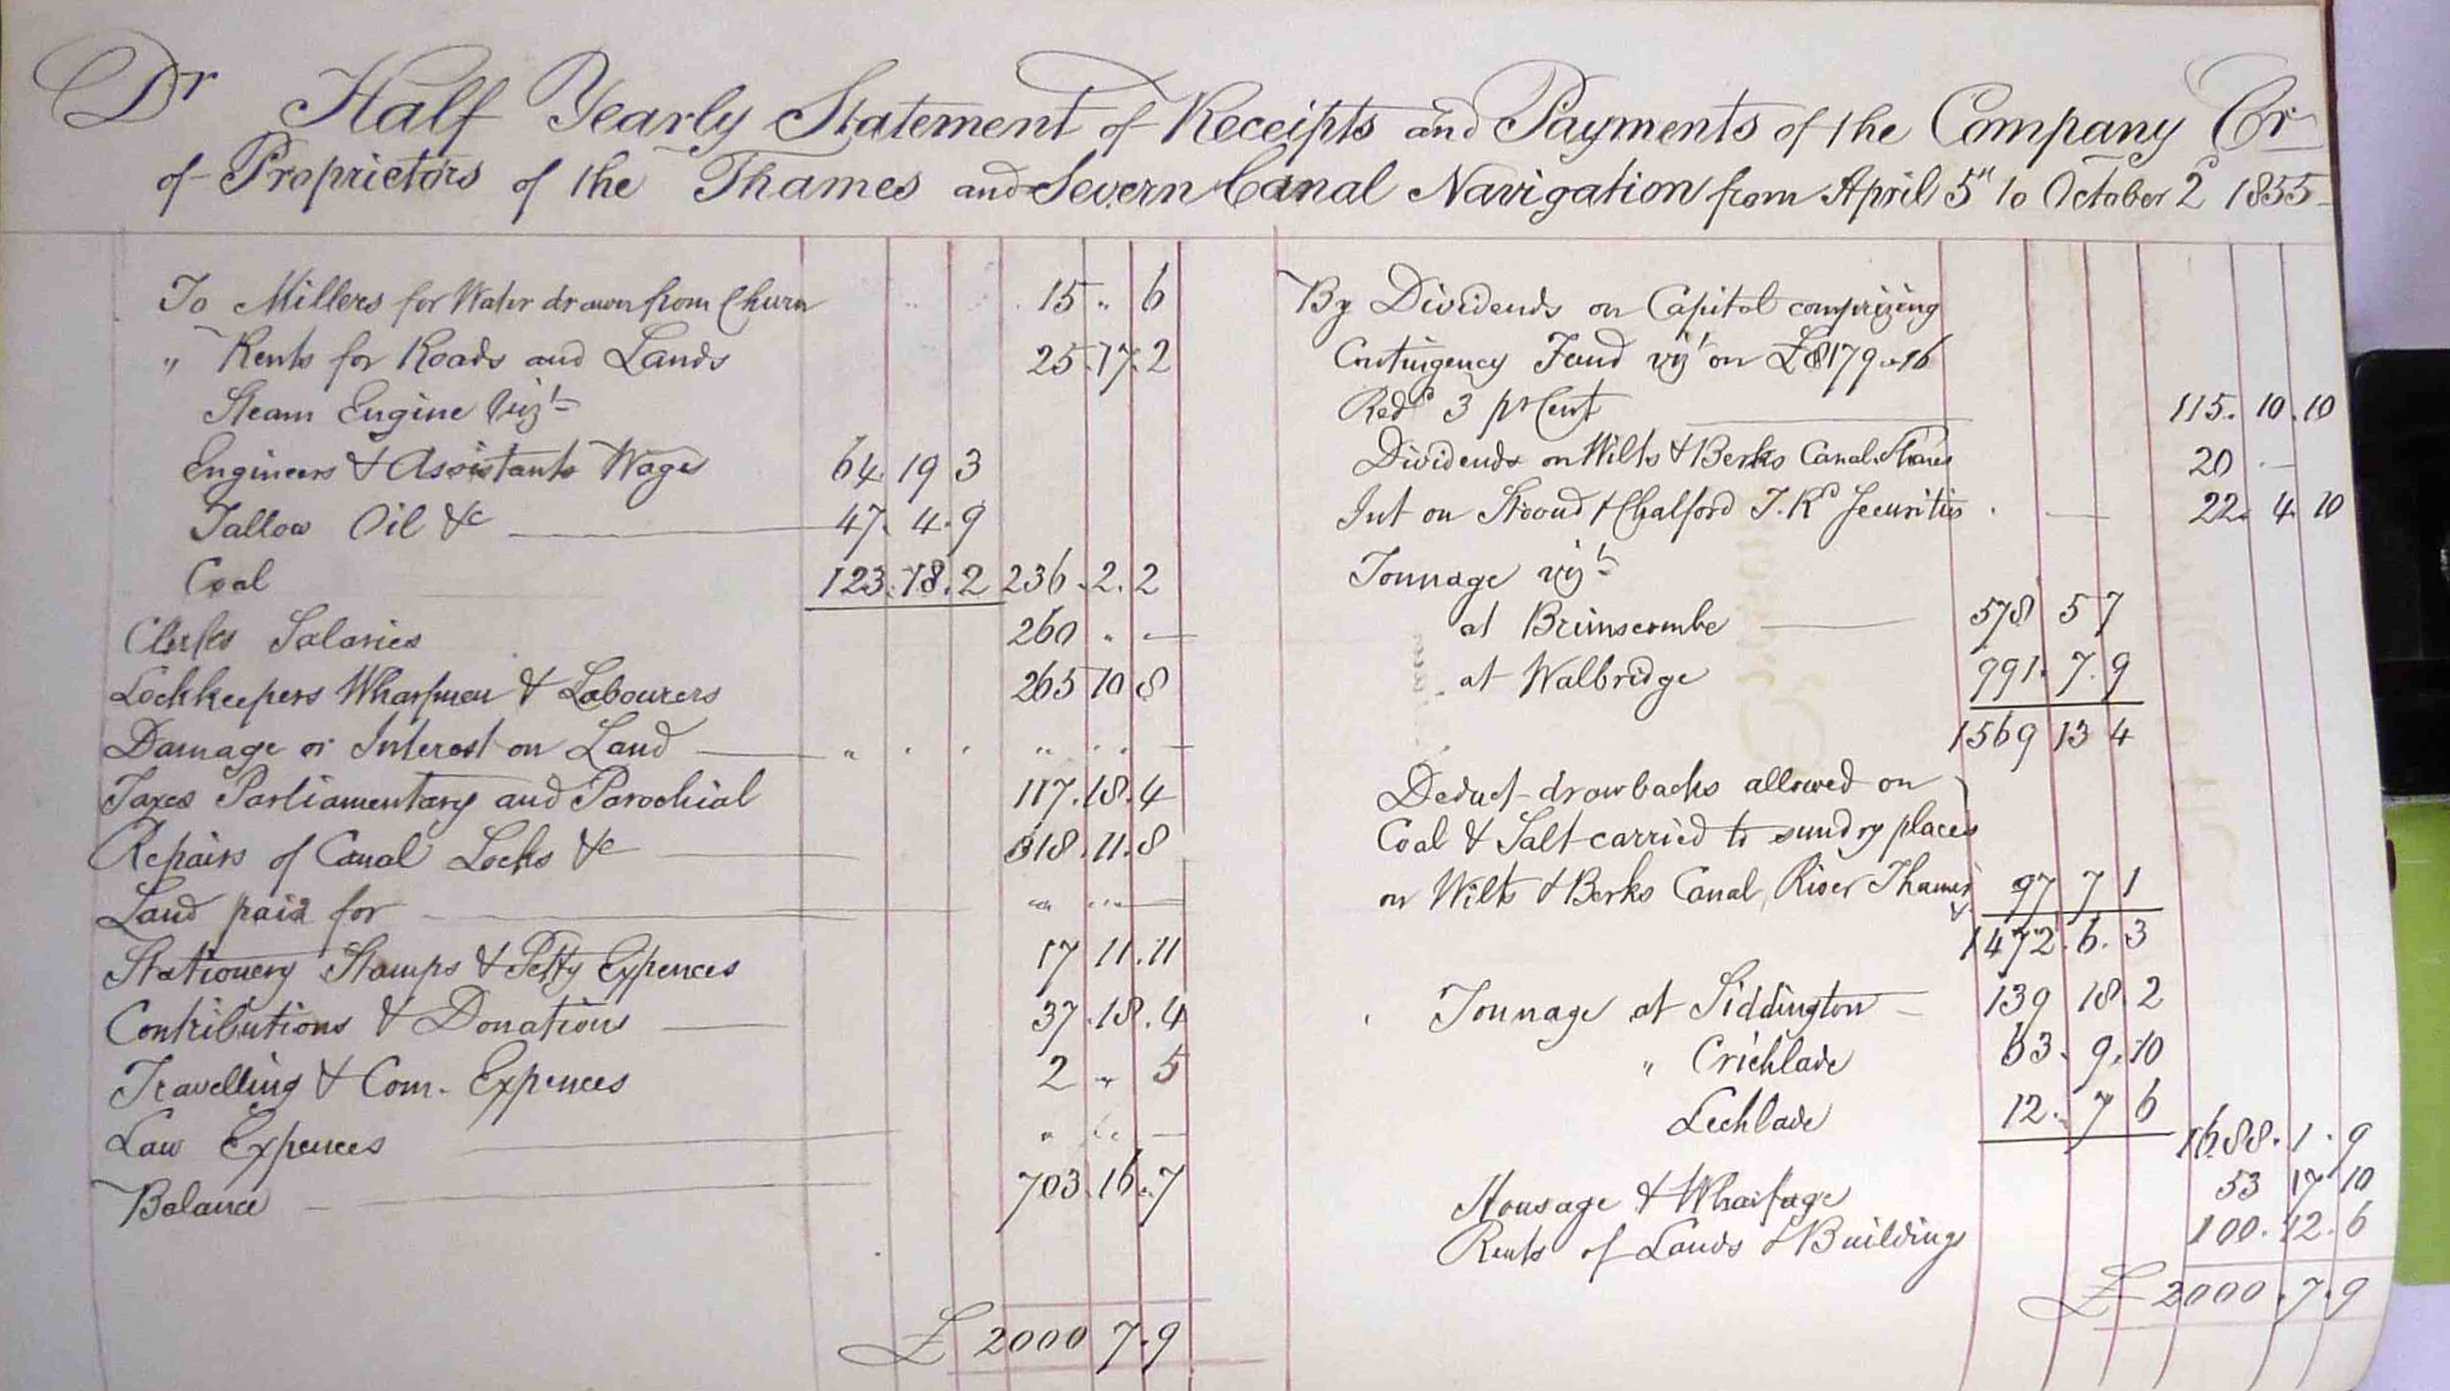 Dr Half Yearly Statement of Receipts and Payments of the Company Cr
of Proprietors of the Thames and Severn Canal Navigation from April 5" to October 2d 1855
To Millers for Water drawn from Churn 15 .. 6
" Rents for Roads and Lands 25.17.2
Steam Engine Vizt
Engineers & Assistants Wages 64.19 3
Tallow Oil &c 47.4.9
Coal 123.18.2 236.2.2
Clerks Salaries 260 " —
Lockkeepers Wharfmen & Labourers 265 10 8
Damage or Interest on Land
Taxes Parliamentary and Parochial 117.18.4
Repairs of Canal Locks &c 318.11.8
Land paid for
Stationery Stamps & Petty Expences 17 11.11
Contributions & Donations 37.18.4
Travelling & Com. Expences 2 " 5
Law Expences
Balance 703.16.7
£ 2000 7.9
By Dividends on Capital comprizing
Contingency Fund vizt on £8179..16
Redd 3 pr Cent 115.10.10
Dividends on Wilts & Berks Canal Shares 20 . —
Int on Stroud & Chalford T.Rd Securities 22.4.10
Tonnage vizt
at Brimscombe 578 5 7
at Walbridge 991.7.9
1569 13 4
Deduct drawbacks allowed on
Coal & Salt carried to sundry places
on Wilts & Berks Canal, River Thames & 97 7 1
1472.6.3
Tonnage at Siddington 139 18 2
" Cricklade 63.9.10
Lechlade 12.7 6 1688.1.9
Housage & Wharfage 53 17 10
Rents of Lands & Buildings 100.12.6
£ 2000.7.9